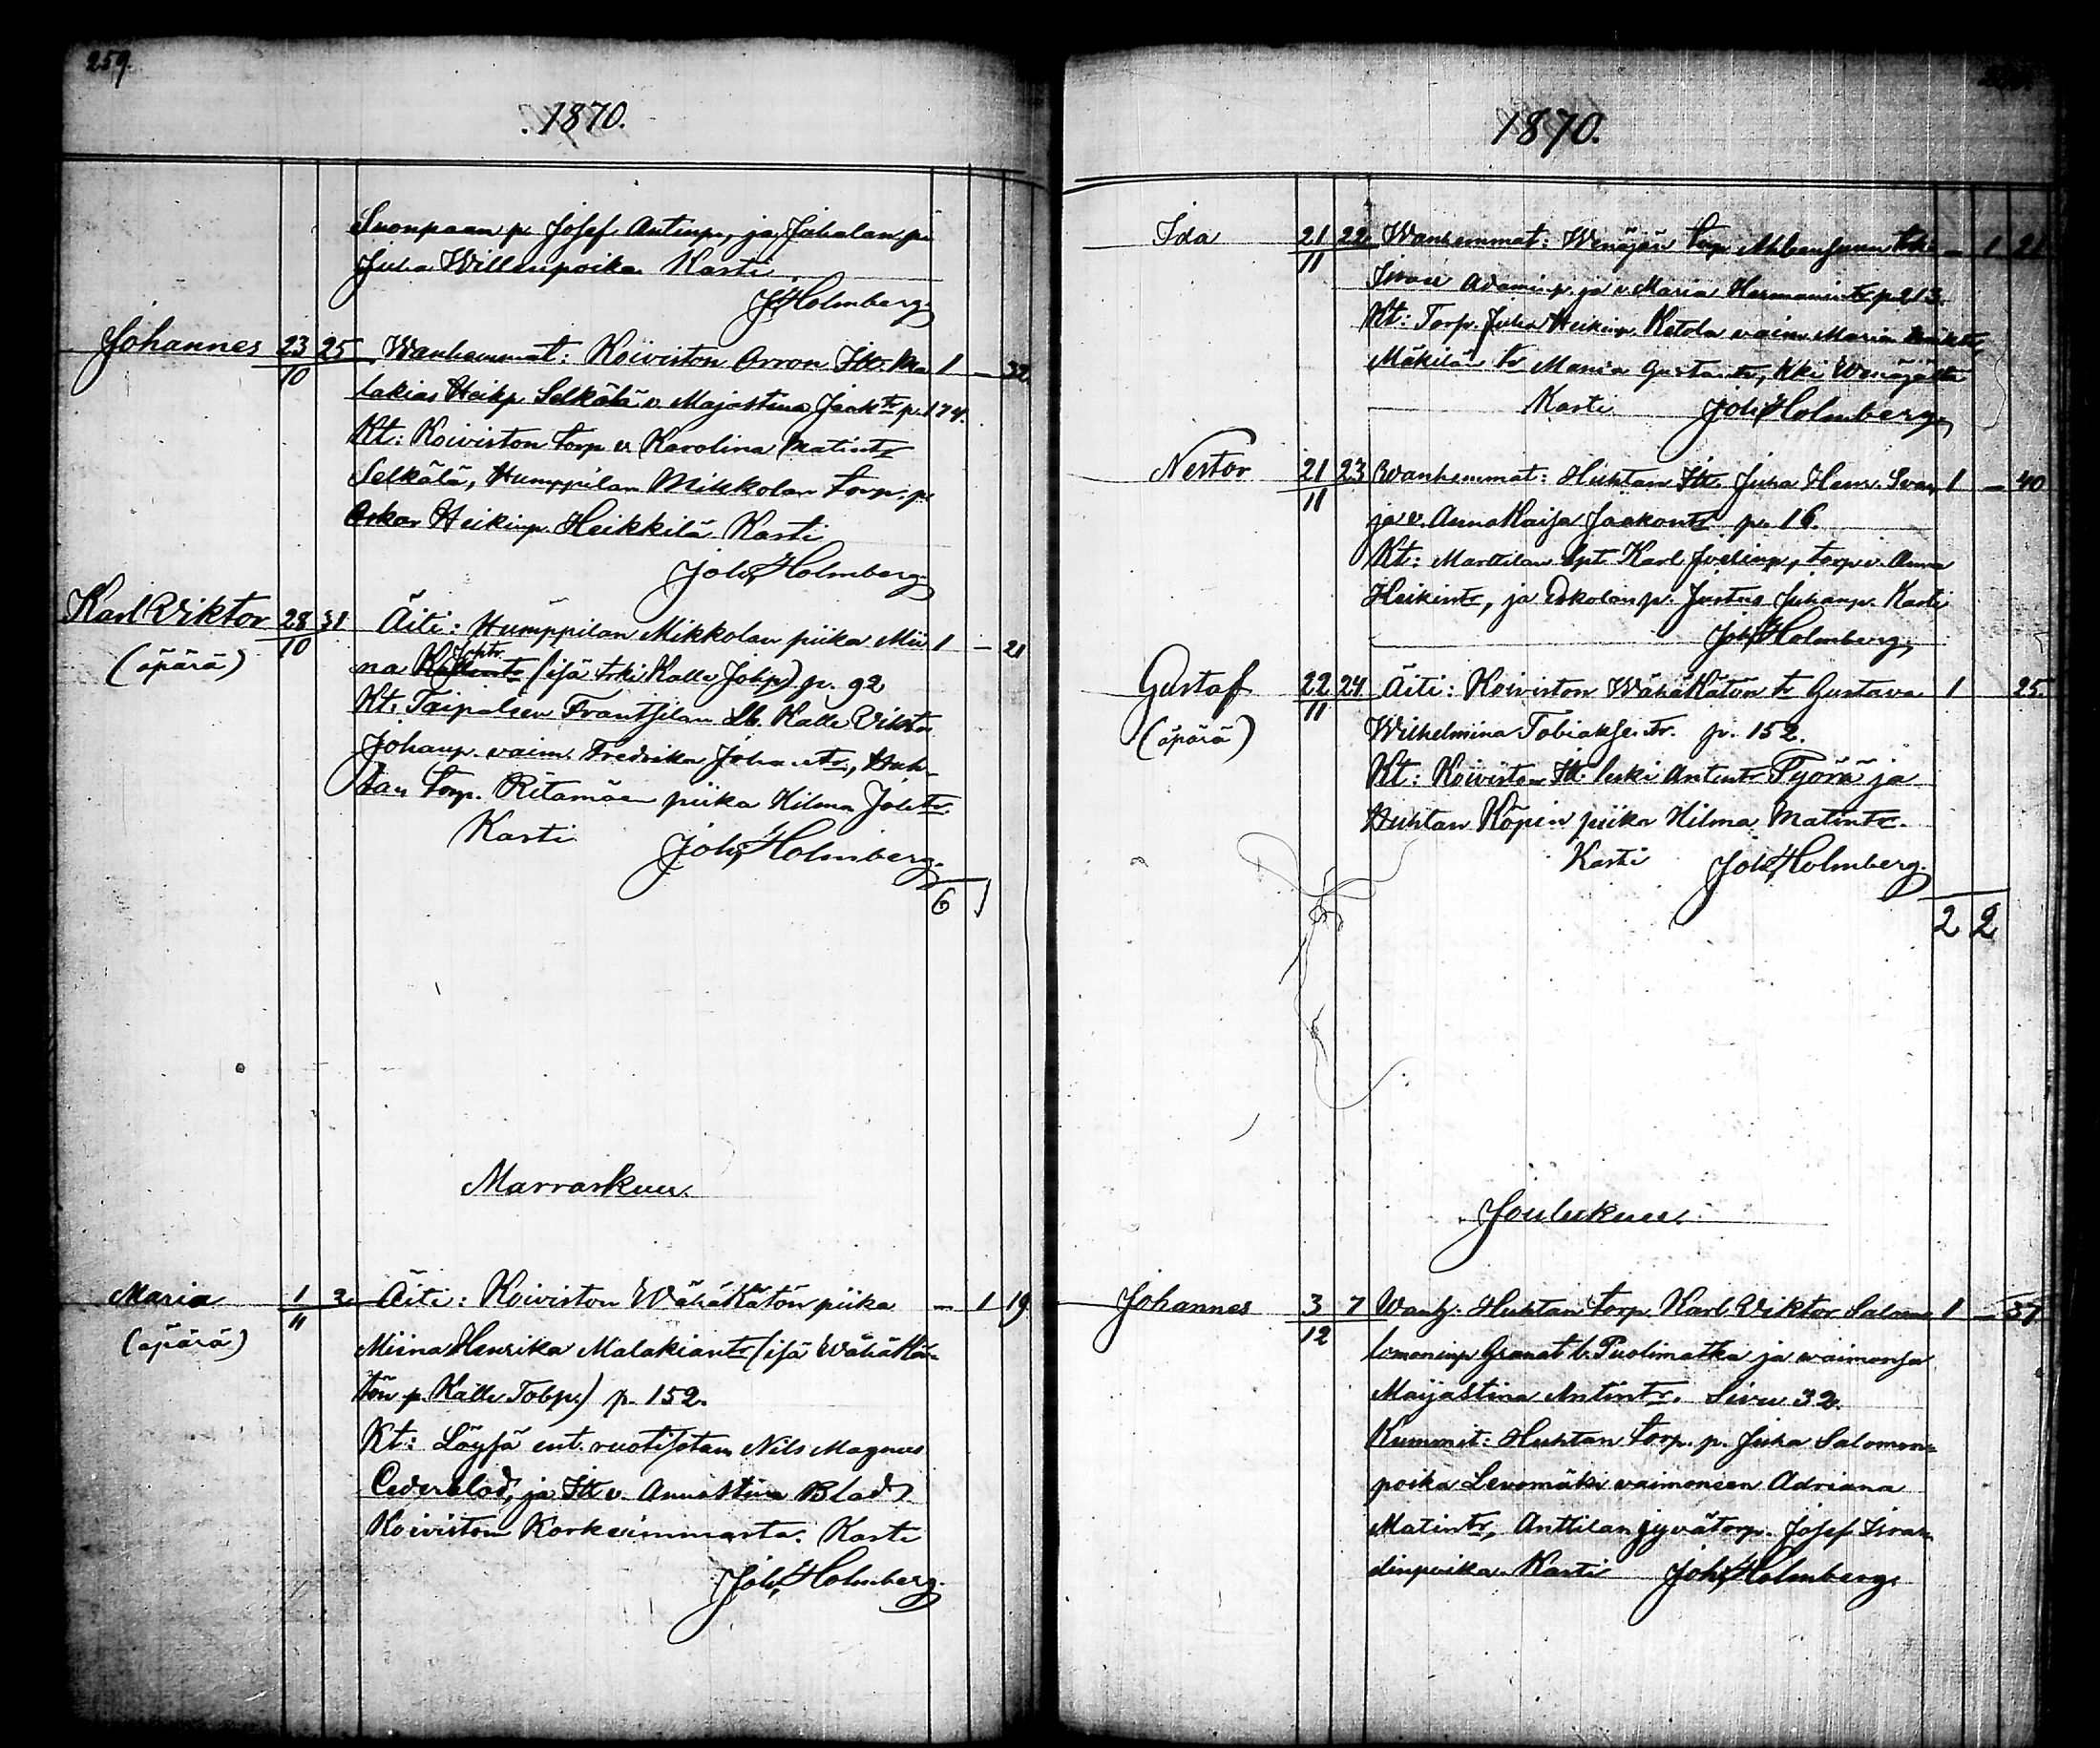 259.
1870.
Suonpaan p. Josef Antinp., ja Juhalan p.
Juha Willenpoika. Kasti
J. Holmberg.
Johannes 23/10 25 Wanhemmat: Koiviston Orron Itk. Ma 1 – 32
lakias Heikp. Selkälä v. Majastina Jaak tr p. 174.
Kt: Koiviston torp v. Karolina Matintr
Selkälä, Humppilan Mikkolan torp. p.
Oskar Heikinp. Heikkilä Kasti
Joh. Holmberg.
Karl Viktor 28/10 31 Äiti: Humppilan Mikkolan piika Mii 1 – 21
(äpärä) na (isä trki Kalle Johp) p. 92
Kt: Taipalsen Frantsilan Lb. Kalle Viktor
Johanp. vaim. Fredrika Joha tr, Huh-
tan torp. Ritamäen piika Hilma Johtr.
Kasti Joh. Holmberg.
6 1
Marraskuu.
Maria 1/11 2 Äiti: Koiviston Wähäkätön piika – 1 19
(äpärä) Miina Henrika Malakiantr (isä Wähäkä-
tön p. Kalle Tobp.) p. 152.
Kt: Löysä ent. ruotisotam. Nils Magnus
Cederblad, ja Itk v. Annastina Blad
Koiviston Korkeimmasta. Kasti
Joh. Holmberg.
1870.
Ida 21/11 22 Wanhemmat: Wenäjän torp – 1 21
Adamin p. ja v. Maria Hermanintr p 213.
Kt: Torp. Juha Heikinp. Ketola vaim. Maria
Mäkilän tr Maria Gusta tr, kki Wenäjältä
Kasti Joh. Holmberg.
Nestor 21/11 23 Wanhemmat: Huhtan Itk. Juha Henr. Svan 1 – 40
ja v. Anna Kaisa Jaakontr p. 16.
Kt: Marttilan Karl Joelinp, torp v. Anna
Heikintr, ja Eskolan p. Justus Juhanp. Kasti
Joh. Holmberg.
Gustaf 22/11 24 Äiti: Koiviston Wähäkätön tr Gustava 1 25.
(äpärä) Wilhelmina Tobiaksentr. p. 152.
Kt: Koiviston Itk. leski Antintr Pyörä ja
Huhtan Köpin piika Hilma Matintr.
Kasti Joh. Holmberg.
2 2
Joulukuu.
Johannes 3/12 7 Wanh: Huhtan torp. Karl Viktor Salomo 1 – 37
lomoninp Granat l. Puolimatka ja vaimonsa
Maijastina Antintr. Sivu 32.
Kummit: Huhtan torp. p. Juha Salomon-
poika Levomäki vaimoneen Adriana
Matintr, Anttilan jyvätorp. Josef Isran-
dinpoika. Kasti Joh. Holmberg.